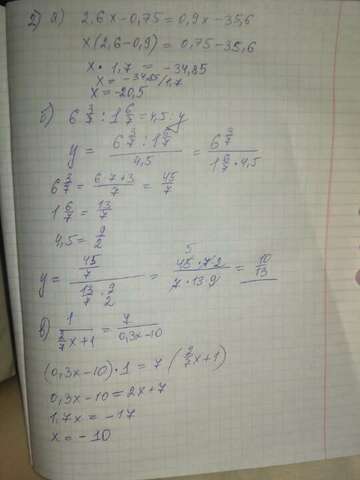 2) а) 2,6x-0,75=0,9x-35,6
x(2,6-0,9)=0,75-35,6
x·1,7=-34,85
x=-34,85/1,7
x=-20,5
б) 6 3/7 : 1 6/7 = 4,5 : y
y = (6 3/7 : 1 6/7)/4,5 = 6 3/7 / (1 6/7 · 4,5)
6 3/7 = (6·7+3)/7 = 45/7
1 6/7 = 13/7
4,5 = 9/2
y = (45/7)/(13/7 · 9/2) = (45·7·2)/(7·13·9) = 10/13
5
в) 1/(2/7 x+1) = 7/(0,3x-10)
(0,3x-10)·1 = 7(2/7 x+1)
0,3x-10=2x+7
1,7x=-17
x=-10